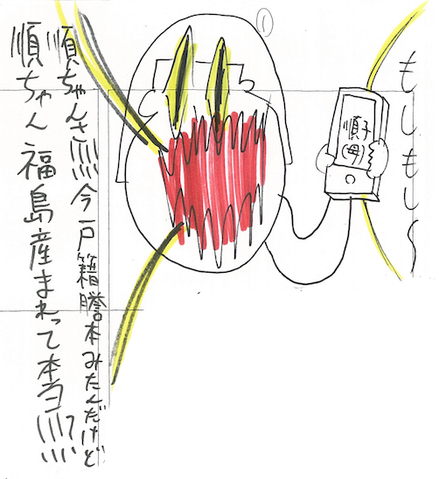 ①
もしもし〜
順子
(母)
順ちゃんさ////今戸籍謄本みたんだけど
順ちゃん福島産まれって本当////て////